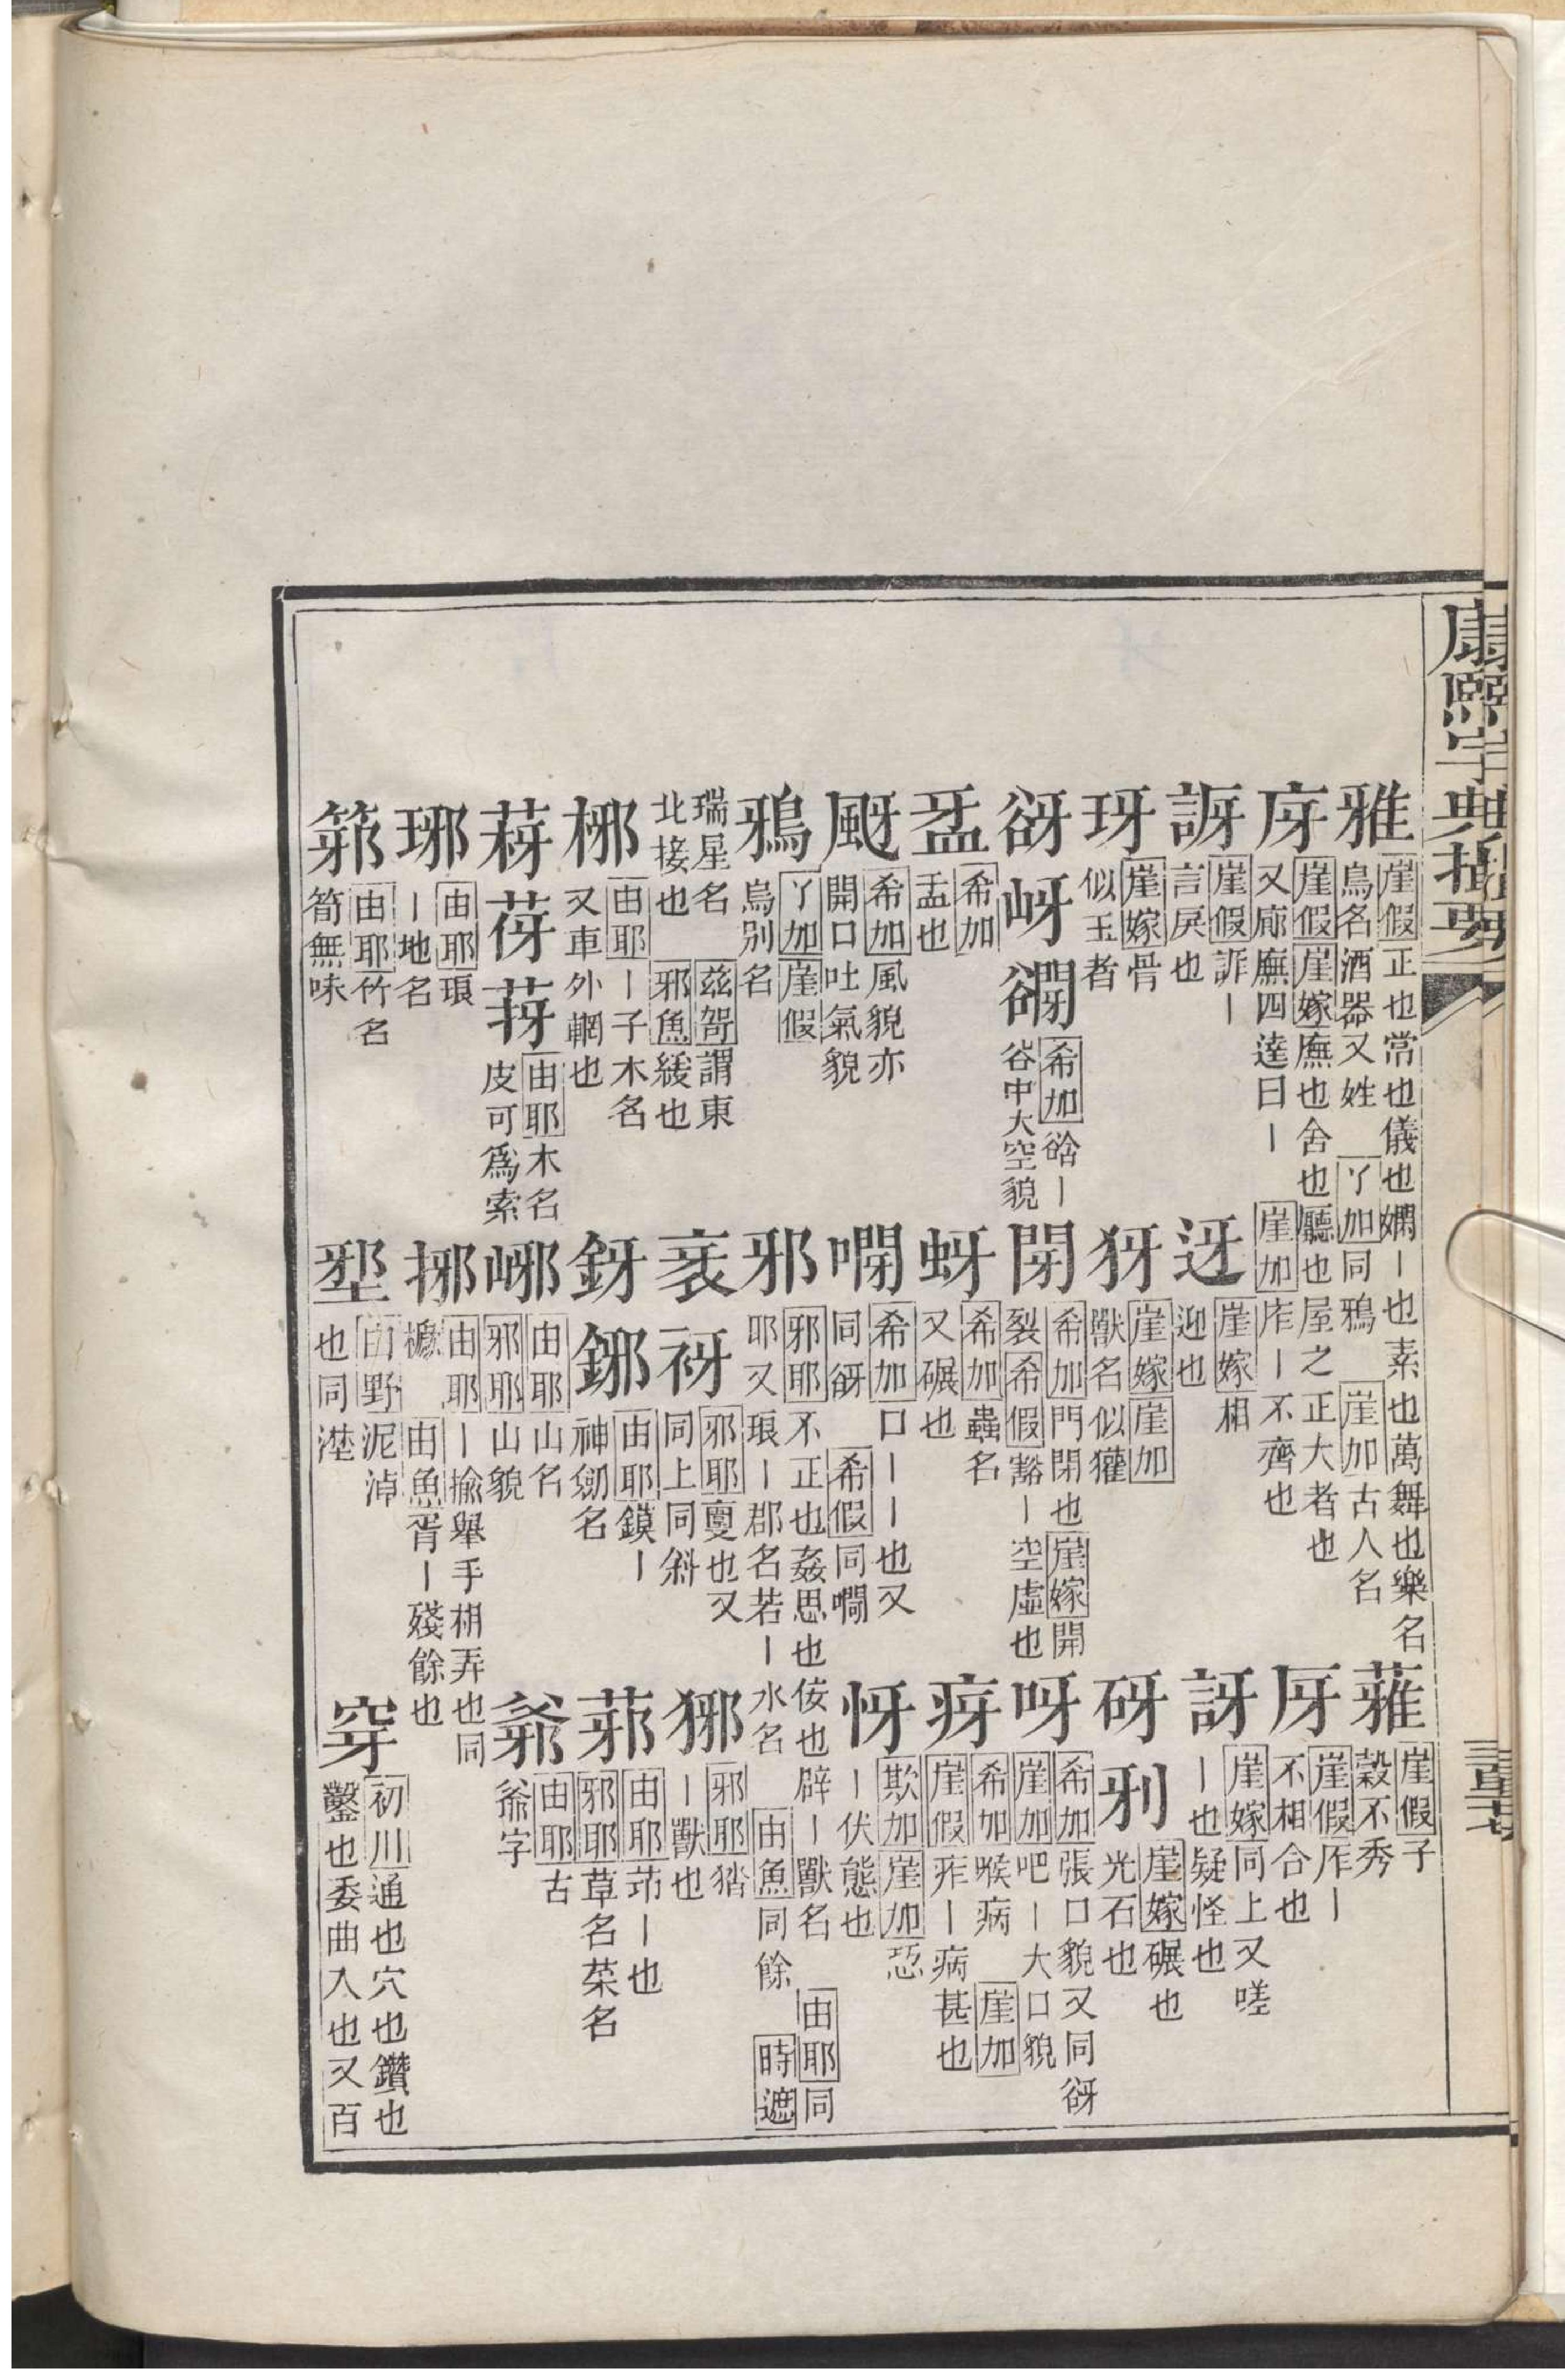 康熙字典撮要
雅 崖假 正也常也儀也嫺｜也素也萬舞也樂名
鳥名酒器又姓 丫加 同鴉 崖加 古人名
蕥 崖假 子
穀不秀
庌 崖假 崖嫁 廡也舍也廳也屋之正大者也
又廊廡四達曰｜ 崖加 庄｜不齊也
厊 崖假 厏｜
不相合也
崖假 ｜
言戾也
迓 崖嫁 相
迎也
訝 崖嫁 同上又嗟
｜也疑怪也
玡 崖嫁 骨
似玉者
犽 崖嫁 崖加
獸名似獾
砑 崖嫁 碾也
光石也
谺岈 希加 谽｜
谷中大空貌
閕 希加 門閉也 崖嫁 開
裂 希假 豁｜空虛也
呀 希加 張口貌又同谺
崖加 吧｜大口貌
希加
盂也
蚜 希加 蟲名
又碾也
疨 希加 喉病 崖加
崖假 痄｜病甚也
颬 希加 風貌亦
開口吐氣貌
希加 口｜｜也又
同谺 希假 同
㤉 欺加 崖加 恐
｜伏態也
鴉 丫加 崖假
烏別名
邪 邪耶 不正也姦思也佞也辟｜獸名 由耶 同
耶又琅｜郡名若｜水名 由魚 同餘 時遮
瑞星名 茲哿 謂東
北接也 邪魚 緩也
衺衺 邪耶 㚆也又
同上同斜
邪耶 猪
｜獸也
梛 由耶 ｜子木名
又車外輞也
釾鎁 由耶 鏌｜
神劒名
由耶 ｜也
邪耶 草名菜名
由耶 木名
皮可爲索
由耶 山名
邪耶 山貌
由耶 古
爺字
琊 由耶 琅
｜地名
揶 由耶 ｜揄舉手相弄也同
由魚 胥｜殘餘也
由耶 竹名
筍無味
由野 泥淖
也同
穿 初川 通也穴也鑽也
鑿也委曲入也又百